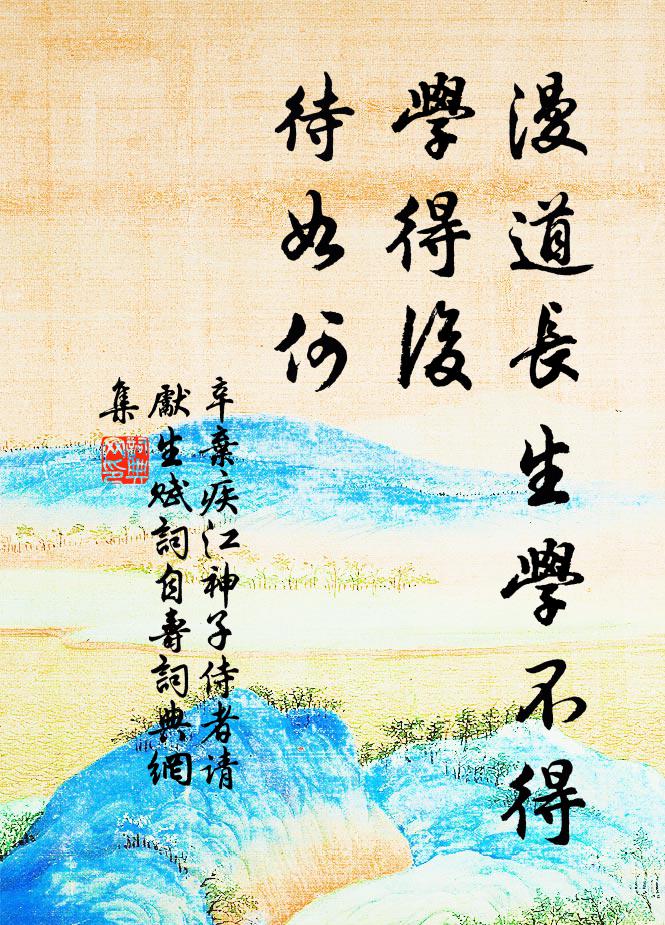 漫道長生學不得
學得後
待如何
辛棄疾江神子侍者请
獻生赋詞自壽詞典網
集